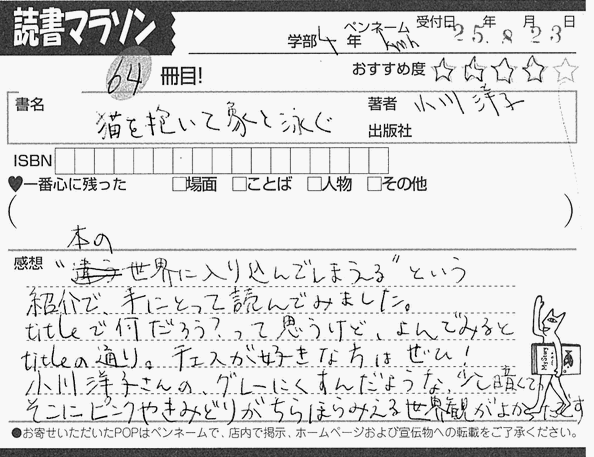 読書マラソン
学部4年 ペンネーム kmh 受付日25年8月23日
64冊目!
おすすめ度
書名 猫を抱いて象と泳ぐ
著者 小川洋子
出版社
ISBN
♥一番心に残った □場面 □ことば □人物 □その他
( )
本の
感想 "違う世界に入り込んでしまえる"という
紹介で、手にとって読んでみました。
titleで何だろう?って思うけど、よんでみると
titleの通り。チェスが好きな方はぜひ!
小川洋子さんの、グレーにくすんだような、少し暗くて、
そこにピンクやきみどりがちらほらみえる世界観がよかったです
●お寄せいただいたPOPはペンネームで、店内で掲示、ホームページおよび宣伝物への転載をご了承ください。